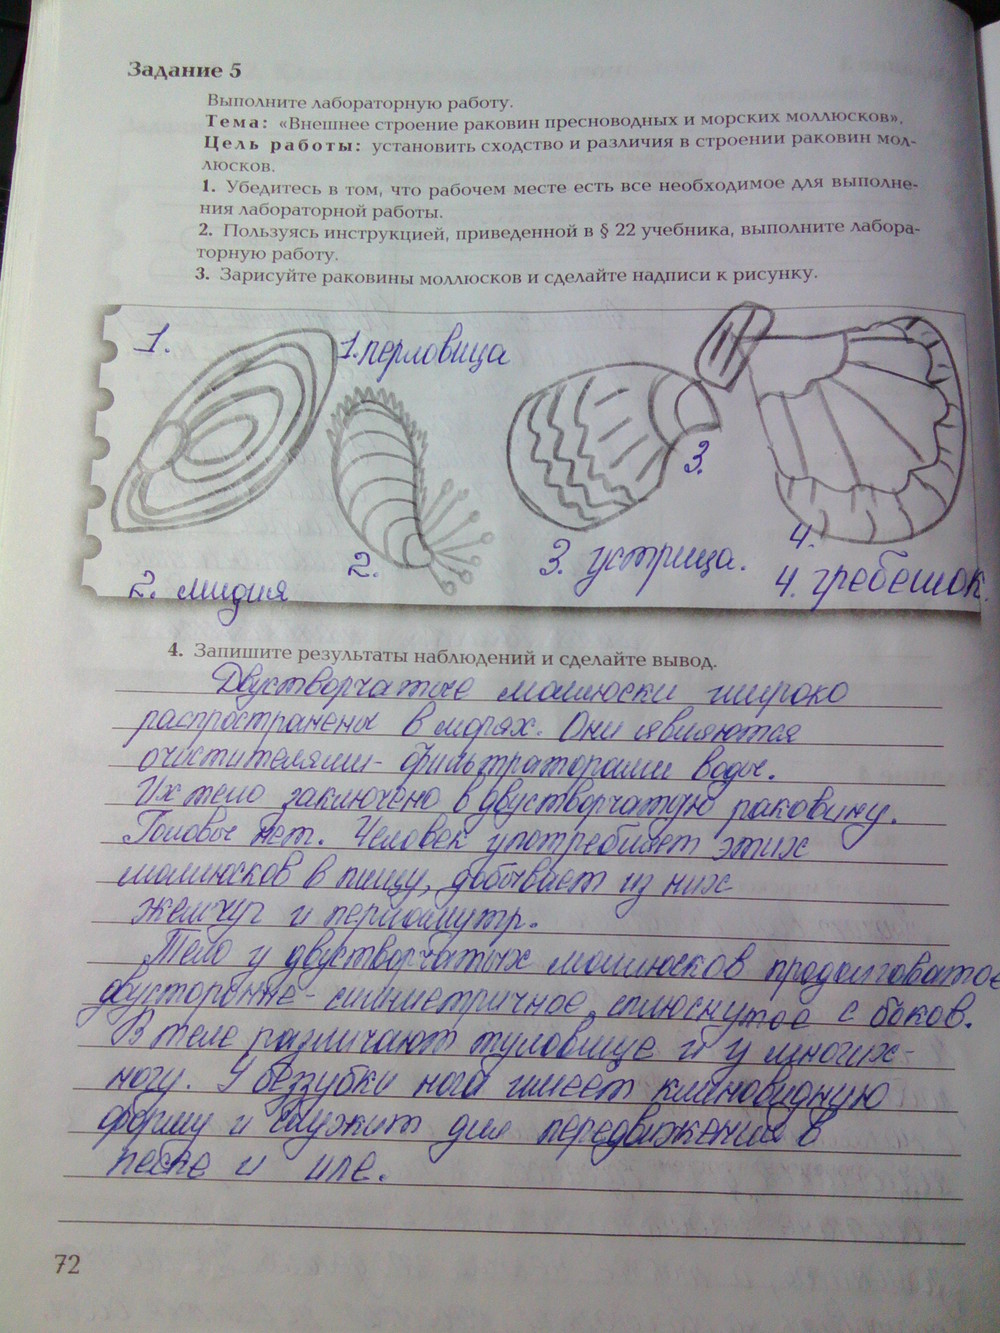 Задание 5
Выполните лабораторную работу.
Тема: «Внешнее строение раковин пресноводных и морских моллюсков».
Цель работы: установить сходство и различия в строении раковин мол-
люсков.
1. Убедитесь в том, что рабочем месте есть все необходимое для выполне-
ния лабораторной работы.
2. Пользуясь инструкцией, приведенной в § 22 учебника, выполните лабора-
торную работу.
3. Зарисуйте раковины моллюсков и сделайте надписи к рисунку.
1.
1. перловица
3.
4.
2.
3. устрица.
4. гребешок.
2. мидия
4. Запишите результаты наблюдений и сделайте вывод.
Двустворчатые моллюски широко
распространены в морях. Они являются
очистителями-фильтраторами воды.
Их тело заключено в двустворчатую раковину.
Головы нет. Человек употребляет этих
моллюсков в пищу, добывает из них
жемчуг и перламутр.
Тело у двустворчатых моллюсков продолговатое
двусторонне-симметричное, сплюснутое с боков.
В теле различают туловище и у многих-
ногу. У беззубки нога имеет клиновидную
форму и служит для передвижения в
песке и иле.
72